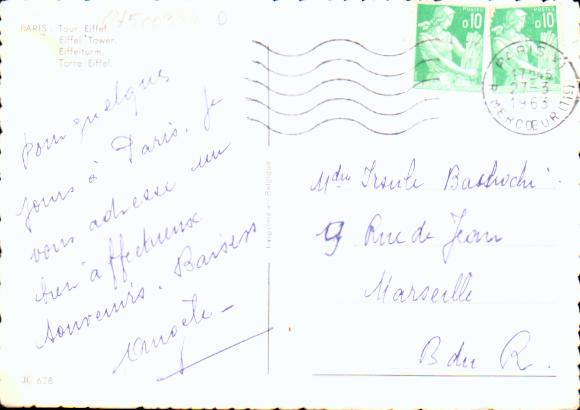 PARIS : Tour Eiffel.
Eiffel Tower.
Eiffelturm.
Torre Eiffel.
Pour quelques
jours à Paris. Je
vous adresse un
bien affectueux
souvenirs. Baisers
JC 628
Imprimé en Belgique
POSTES
0,10
POSTES
0,10
PARIS
17H45
27-3
1963
R. MERCŒUR (11e)
Rue de Jean
Marseille
B du R.